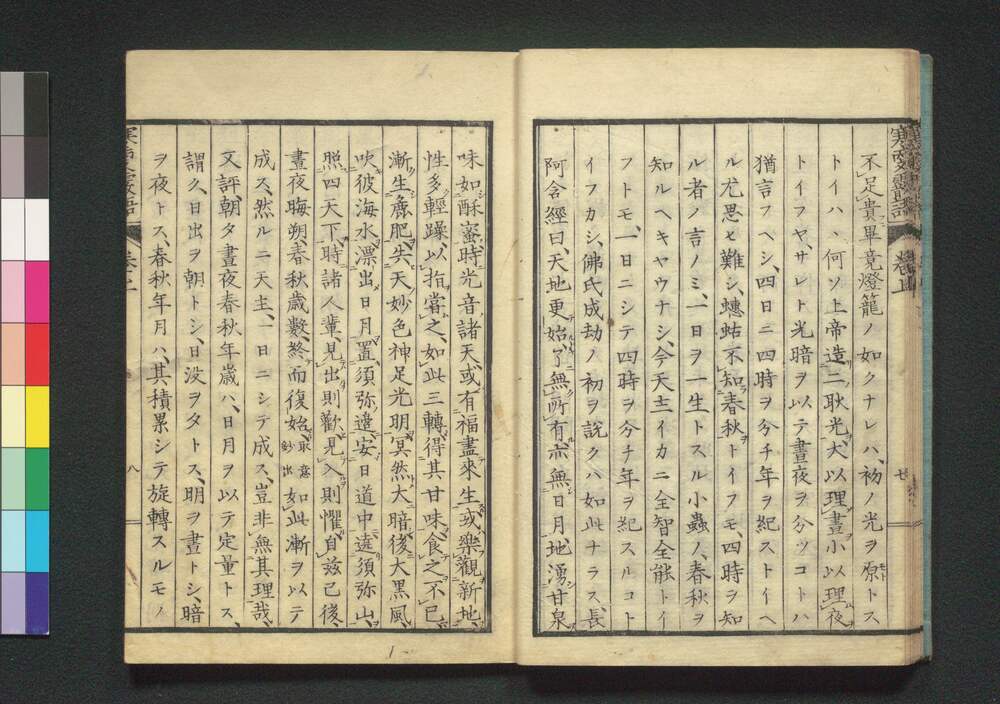 不足貴畢竟燈籠ノ如クナレハ、初ノ光ヲ原トス
トイハヽ何ソ上帝造二耿光、大以理晝小以理夜
トイフヤ、サレト光暗ヲ以テ晝夜ヲ分ツコトハ
猶言フヘシ、四日ニ四時ヲ分チ年ヲ紀ストイヘ
ル尤思ヒ難シ、蟪蛄不知春秋トイフモ、四時ヲ知
ル者ノ言ノミ、一日ヲ一生トスル小蟲ノ、春秋ヲ
知ルヘキヤウナシ、今天主イカニ全智全能トイ
フトモ、一日ニシテ四時ヲ分チ年ヲ紀スルコト
イフカシ、佛氏成劫ノ初ヲ説クハ如此ナラス、長
阿含經曰、天地更始、了無所有、亦無日月、地湧甘泉
卷上
七
味如酥蜜、時光音諸天、或有福盡來生、或樂觀新地、
性多輕躁、以指嘗之、如此三轉、得其甘味、食之不已、
漸生麁肥、失天妙色神足光明、冥然大暗、後大黑風
吹彼海水、漂出日月、置須弥邊、安日道中、遶須弥山、
照四天下、時諸人輩、見出則歡、見入則懼、自兹已後、
晝夜晦朔、春秋歳數、終而復始、取意鈔出如此漸ヲ以テ
成ス、然ルニ天主、一日ニシテ成ス、豈非無其理哉、
又評、朝夕晝夜春秋年歳ハ、日月ヲ以テ定量トス、
謂ク、日出ヲ朝トシ、日没ヲ夕トス、明ヲ晝トシ、暗
ヲ夜トス、春秋年月ハ、其積累シテ旋轉スルモノ
八